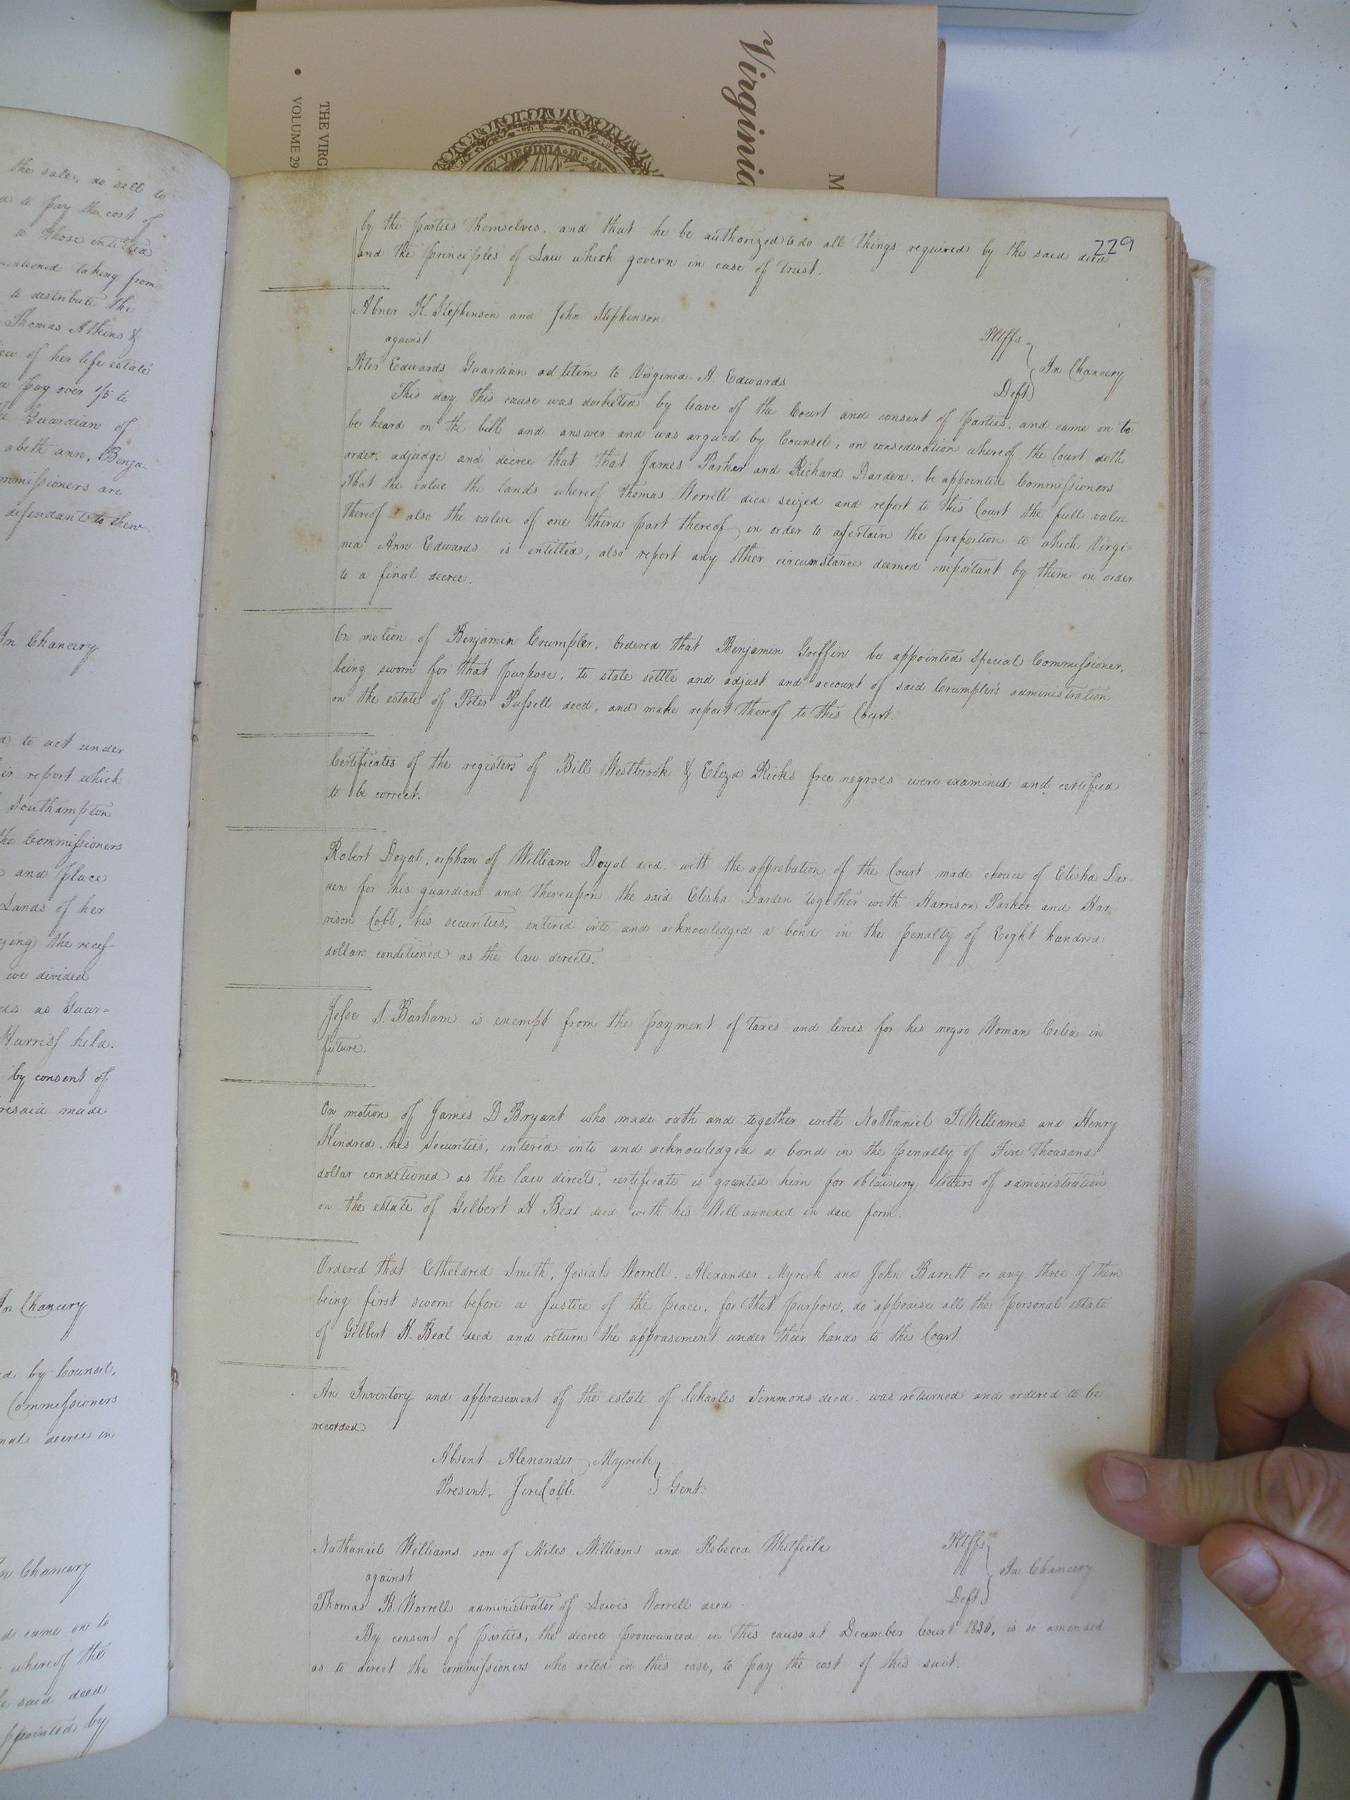 Virginia
THE VIRG
VOLUME 29
M
VIRGINIA IN
the sale, do sell to
to pay the cost of
to those entitled
mentioned taking from
to distribute the
Thomas Atkins &
view of her life estate
pay over 1/5 to
Guardian of
abeth ann, Benja-
mmissioners are
defendant to shew
In Chancery
to act under
report which
Southampton
the Commissioners
and place
Lands of her
ying the
we divided
as Guar=
Harriss held.
by consent of
resaid made
In Chancery
ed by Counsel,
Commissioners
nal decree in
In Chancery
d came on to
whereof the
said deed
ppointed by
229
by the parties themselves, and that he be authorized to do all things required by the said deed
and the principles of Law which govern in case of trust.
Abner K. Stephenson and John Stephenson Pltffs
against In Chancery
Peter Edwards Guardian ad litem to Virginia A. Edwards Deft
This day this cause was docketed by leave of the Court and consent of Parties, and came on to
be heard on the bill and answer and was argued by Counsel, on consideration whereof the Court doth
order, adjudge and decree that that James Parker and Richard Darden, be appointed Commissioners
that the value the lands whereof Thomas Worrell died seized and report to this Court the full value
thereof also the value of one third part thereof in order to assertain the proportion to which Virgi-
nia Ann Edwards is entitled, also report any other circumstance deemed important by them in order
to a final decree.
On motion of Benjamin Crumpler, Ordered that Benjamin Goeffin be appointed Special Commissioner,
being sworn for that purpose, to state settle and adjust and account of said Crumpler's administration
on the estate of Peter Fussell decd, and make report thereof to this Court.
Certificates of the registers of Bill Westbrook & Eliza Ricks free negroes were examined and certified
to be correct.
Robert Doyal, orphan of William Doyal decd. with the approbation of the Court made choice of Elisha Dar-
den for his guardian and thereupon the said Elisha Darden together with Harrison Parker and Har-
rison Cobb, his securities, entered into and acknowledged a bond in the penalty of Eight hundred
dollars conditioned as the law directs.
Jesse S. Barham is exempt from the payment of taxes and levies for his negro Woman Celia in
future.
On motion of James D Bryant who made oath and together with Nathaniel T. Williams and Henry
Kindred, his securities, entered into and acknowledged a bond in the penalty of Five thousand
dollar conditioned as the law directs, certificate is granted him for obtaining letters of administration
on the estate of Gilbert H Beal decd with his Will annexed in due form.
Ordered that Etheldred Smith, Josiah Worrell, Alexander Myrick and John Barrett or any three of them
being first sworn before a Justice of the peace, for that purpose, do appraise all the personal estate
of Gilbert H. Beal decd and return the apprasement under their hands to this Court
An Inventory and apprasement of the estate of Charles Simmons decd. was returned and ordered to be
recorded
Absent Alexander Myrick
Present Jere Cobb Gent.
Nathaniel Williams son of Miles Williams and Rebecca Whitfield Pltffs
against In Chancery
Thomas B. Worrell administrator of Lewis Worrell decd Deft
By consent of parties, the decree pronounced in this cause at December Court 1836, is so amended
as to direct the commissioners who acted in this case, to pay the cost of this suit.